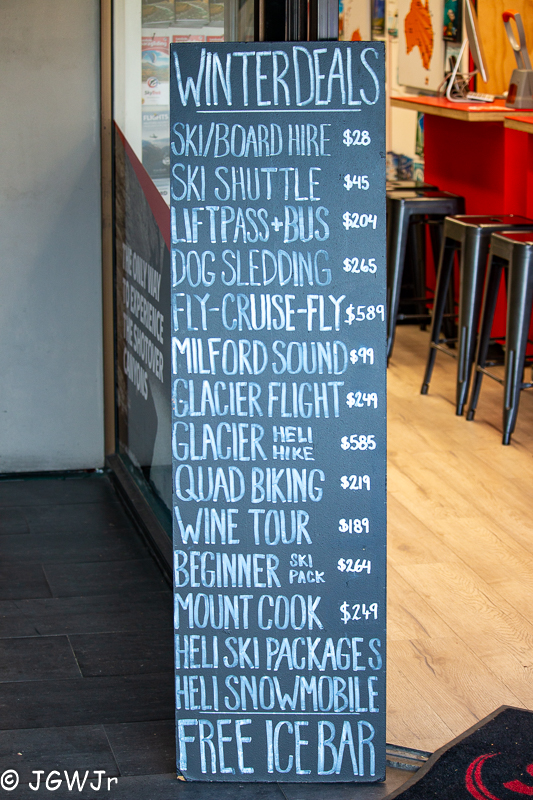 WINTER DEALS
SKI/BOARD HIRE $28
SKI SHUTTLE $45
LIFTPASS+BUS $204
DOG SLEDDING $265
FLY-CRUISE-FLY $589
MILFORD SOUND $99
GLACIER FLIGHT $249
GLACIER HELI HIKE $585
QUAD BIKING $219
WINE TOUR $189
BEGINNER SKI PACK $264
MOUNT COOK $249
HELI SKI PACKAGES
HELI SNOWMOBILE
FREE ICE BAR
THE ONLY WAY
TO EXPERIENCE
THE SHOTOVER
CANYONS
© JGWJr